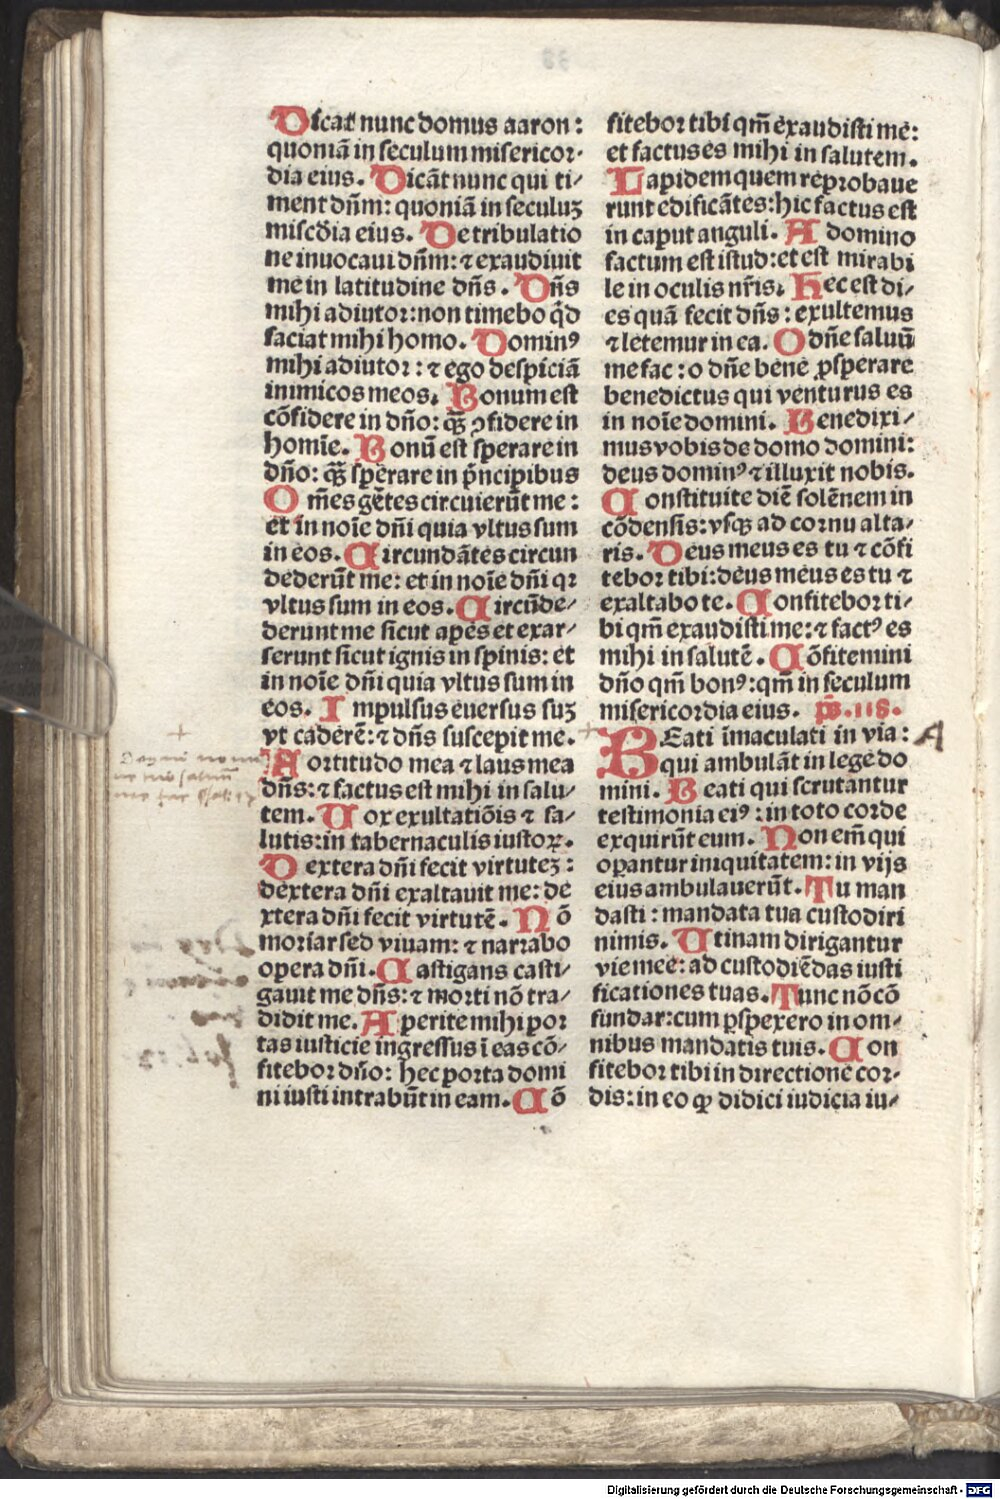 Dicat nunc domus aaron:
quoniā in seculum misericor-
dia eius. Dicāt nunc qui ti/
ment dn̄m: quoniā in seculuꝫ
misc̄dia eius. De tribulatio
ne inuocaui dn̄m: ⁊ exaudiuit
me in latitudine dn̄s. Dn̄s
mihi adiutor: non timebo qͥd
faciat mihi homo. Dominꝰ
mihi adiutor: ⁊ ego despiciā
inimicos meos. Bonum est
cōfidere in dn̄o: qͣꝫ ꝯfidere in
homīe. Bonū est sperare in
dn̄o: qͣꝫ sperare in pͥncipibus
Om̄es gētes circuierūt me:
et in noīe dn̄i quia vltus sum
in eos. Circundātes circun
dederūt me: et in noīe dn̄i qꝛ
vltus sum in eos. Circūde/
derunt me sicut apes et exar/
serunt sicut ignis in spinis: et
in noīe dn̄i quia vltus sum in
eos. Impulsus euersus suꝫ
vt caderē: ⁊ dn̄s suscepit me.
Aortitudo mea ⁊ laus mea
dn̄s: ⁊ factus est mihi in salu-
tem. Uox exultatiōis ⁊ sa/
lutis: in tabernaculis iustoꝝ.
Dextera dn̄i fecit virtuteꝫ:
dextera dn̄i exaltauit me: de
xtera dn̄i fecit virtutē. Nō
moriar sed viuam: ⁊ narrabo
opera dn̄i. Castigans casti/
gauit me dn̄s: ⁊ morti nō tra/
didit me. Aperite mihi por
tas iusticie ingressus ī eas cō/
fitebor dn̄o: hec porta domi
ni iusti intrabūt in eam. Cō
fitebor tibi qm̄ exaudisti me:
et factus es mihi in salutem.
Lapidem quem reprobaue
runt edificātes: hic factus est
in caput anguli. A domino
factum est istud: et est mirabi
le in oculis nr̄is. Hec est di/
es quā fecit dn̄s: exultemus
⁊ letemur in ea. O dn̄e saluū
me fac: o dn̄e bene ꝓsperare
benedictus qui venturus es
in noīe domini. Benedixi/
mus vobis de domo domini:
deus dominꝰ ⁊ illuxit nobis.
Constituite diē solēnem in
cōdensis: vsqꝫ ad cornu alta/
ris. Deus meus es tu ⁊ cōfi
tebor tibi: deus meus es tu ⁊
exaltabo te. Confitebor ti-
bi qm̄ exaudisti me: ⁊ factꝰ es
mihi in salutē. Cōfitemini
dn̄o qm̄ bonꝰ: qm̄ in seculum
misericordia eius. p̄s. 118.
BEati īmaculati in via: A
qui ambulāt in lege do
mini. Beati qui scrutantur
testimonia eiꝰ: in toto corde
exquirūt eum. Non em̄ qui
oꝑantur iniquitatem: in vijs
eius ambulauerūt. Tu man
dasti: mandata tua custodiri
nimis. Utinam dirigantur
vie mee: ad custodiēdas iusti
ficationes tuas. Tunc nō cō
fundar: cum ꝑspexero in om/
nibus mandatis tuis. Con
fitebor tibi in directione cor-
dis: in eo ꝙ didici iudicia iu/
Digitalisierung gefördert durch die Deutsche Forschungsgemeinschaft - DFG